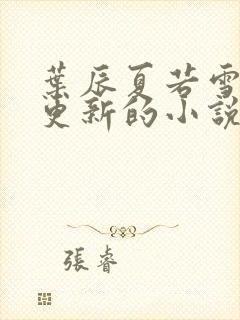 葉辰夏若雪
更新的小說
張睿